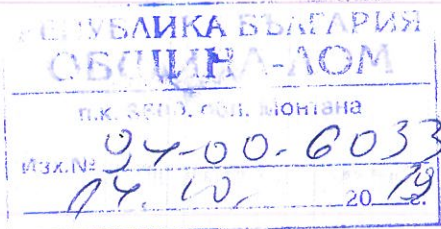 РЕПУБЛИКА БЪЛГАРИЯ
ОБЩИНА-ЛОМ
п.к. 3600, обл. Монтана
Изх.№ 94-00-6033
14. 10. 2019 г.